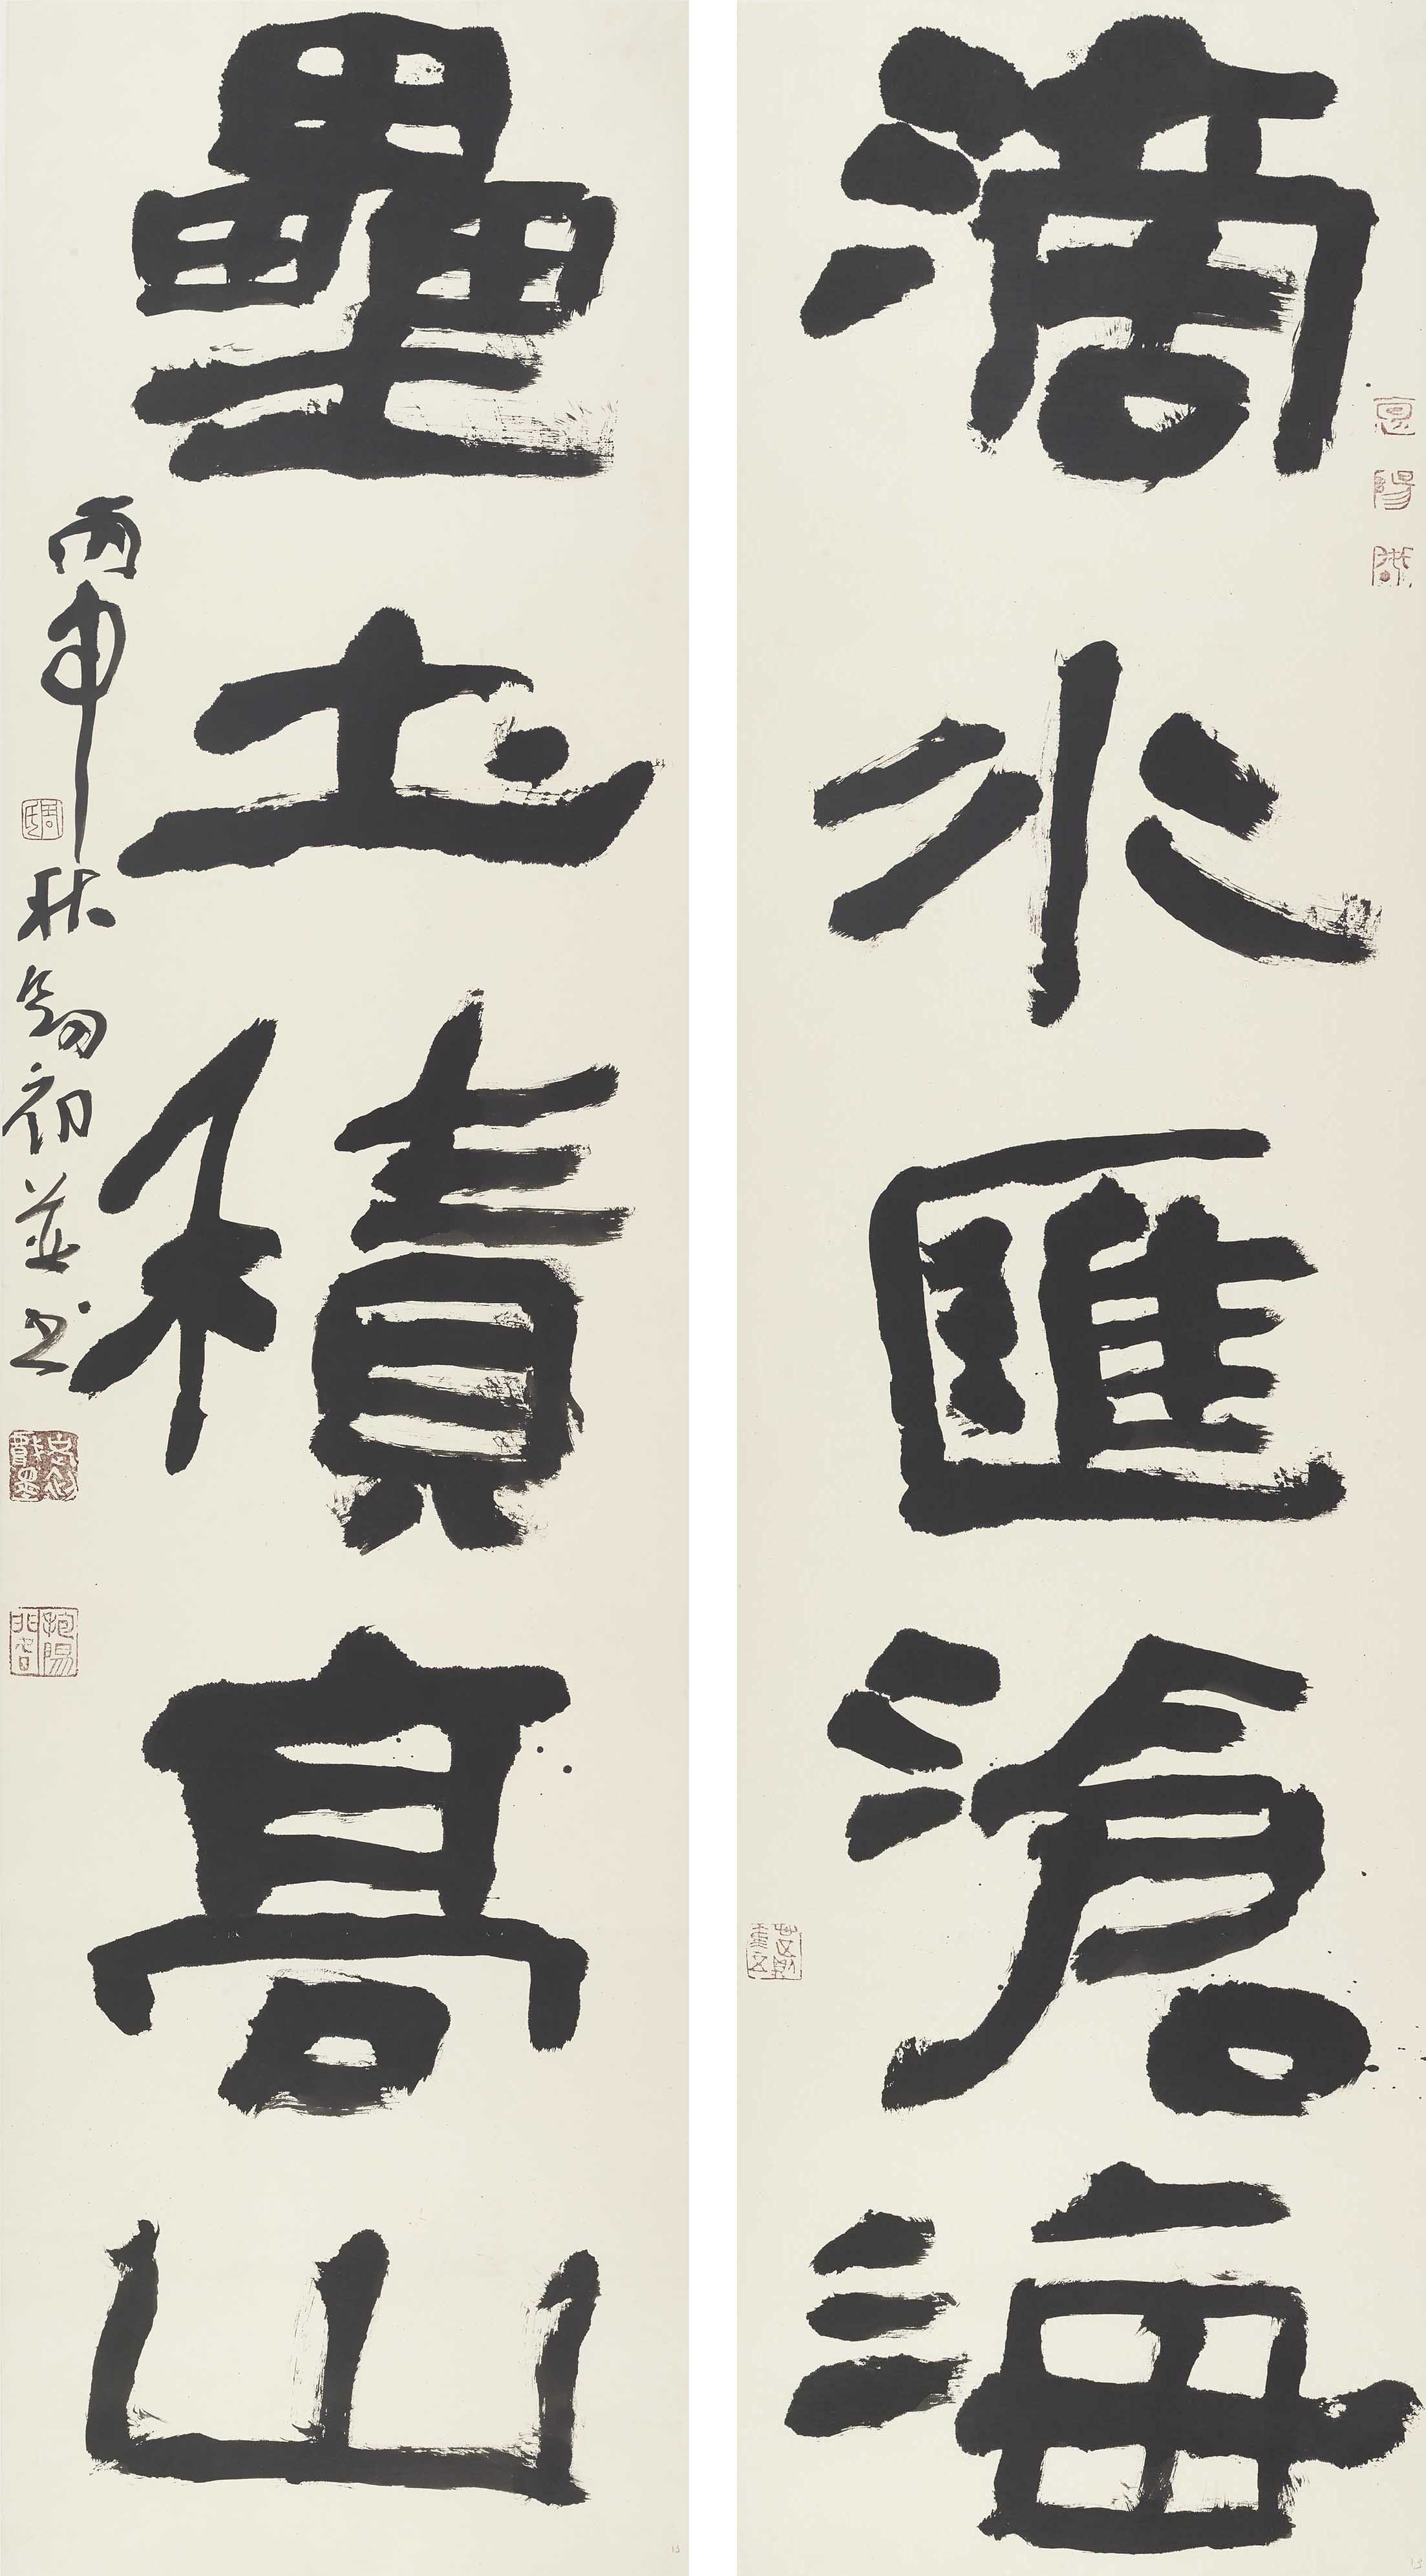 滴水匯滄海
壘土積高山
丙申秋錫初並書